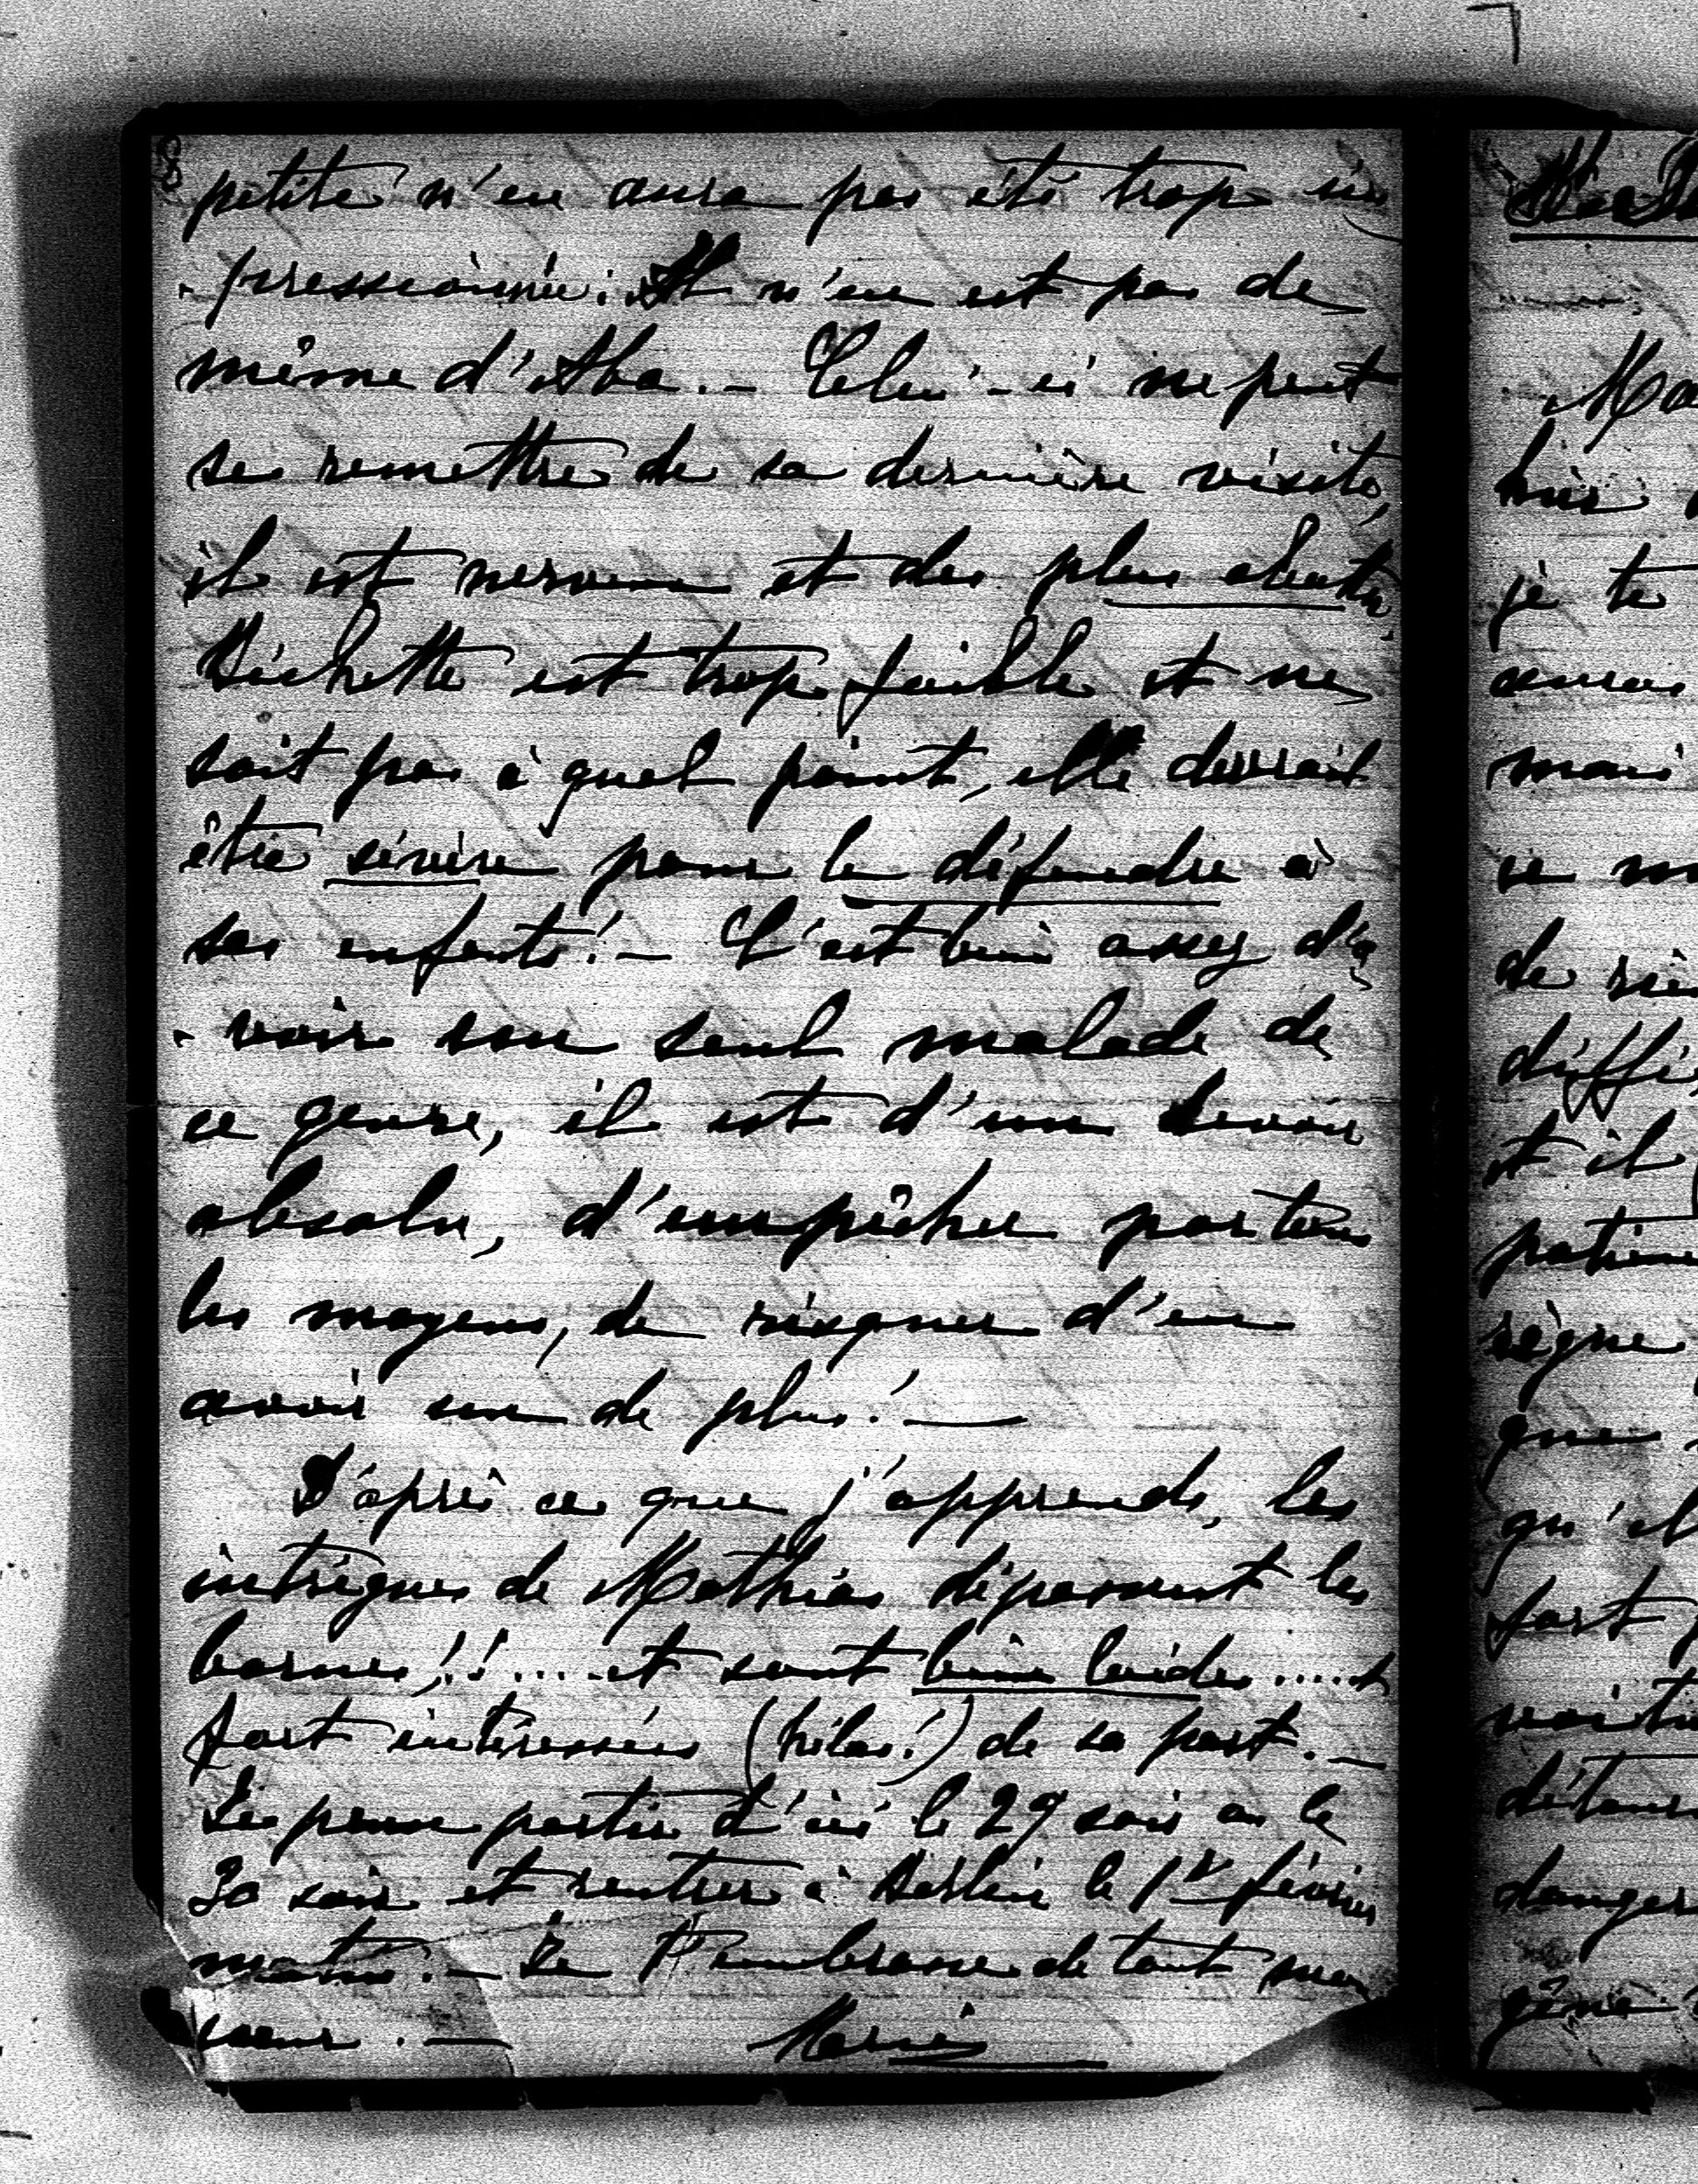 8
petite n'en aura pas été trop im
-pressionnée. Il n'en est pas de
même d'Aba. – Celui-ci ne peut
se remettre de sa dernière visite,
il est nerveux et des plus
Bichette est trop faible et ne
sait pas à quel point, elle devrait
être sévère pour le défendre à
ses enfants! – C'est bien assez d'a
-voir un seul malade de
ce genre, il est d'un devoir
absolu, d'empêcher par tous
les moyens, de risquer d'en
avoir un de plus! —
D'après ce que j'apprends, les
intrigues de Mathias dépassent les
bornes,!!.... et sont bien laides.....et
fort intéressées (hélas!) de sa part. –
Je pense partir d'ici le 29 soir ou le
30 soir et rentrer à Berlin le 1er février
matin. – Je t'embrasse de tout mon
cœur. — Marie
Ma
hier
je te
mais
ce m
de
diffi
et il
règne
que
qu'el
fort
danger